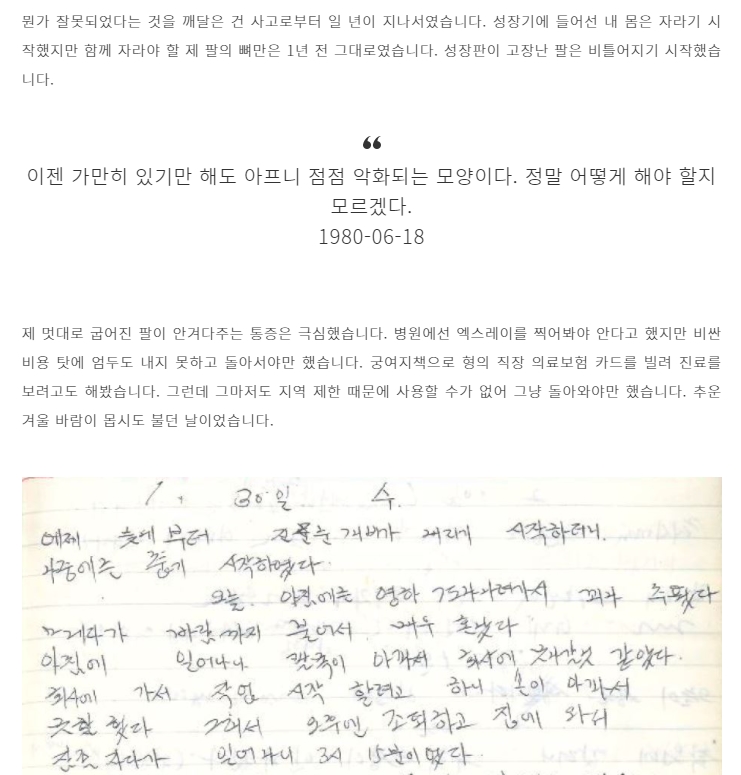 뭔가 잘못되었다는 것을 깨달은 건 사고로부터 일 년이 지나서였습니다. 성장기에 들어선 내 몸은 자라기 시
작했지만 함께 자라야 할 제 팔의 뼈만은 1년 전 그대로였습니다. 성장판이 고장난 팔은 비틀어지기 시작했습
니다.
❝
이젠 가만히 있기만 해도 아프니 점점 악화되는 모양이다. 정말 어떻게 해야 할지
모르겠다.
1980-06-18
제 멋대로 굽어진 팔이 안겨다주는 통증은 극심했습니다. 병원에선 엑스레이를 찍어봐야 안다고 했지만 비싼
비용 탓에 엄두도 내지 못하고 돌아서야만 했습니다. 궁여지책으로 형의 직장 의료보험 카드를 빌려 진료를
보려고도 해봤습니다. 그런데 그마저도 지역 제한 때문에 사용할 수가 없어 그냥 돌아와야만 했습니다. 추운
겨울 바람이 몹시도 불던 날이었습니다.
1. 30일 수.
어제 부터 시작하더니.
나중에는 시작하였다.
오늘 아침에는 영하 추웠다
바람까지 불어서 매우 혼났다
아침에 일어나니 팔목이 아파서 회사에 못나갈것 같았다.
회사에 가서 작업 시작 할려고 하니 손이 아파서
못할 했다 그래서 오후엔 조퇴하고 집에 와서
자다가 일어나니 3시 15분이었다.